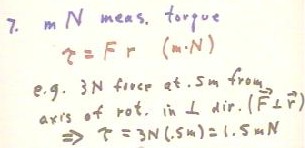 7. m N meas. torque
τ = F r (m·N)
e.g. 3N force at .5m from
axis of rot. in ⊥ dir. (F⃗ ⊥ r⃗)
⇒ τ = 3N(.5m) = 1.5 mN